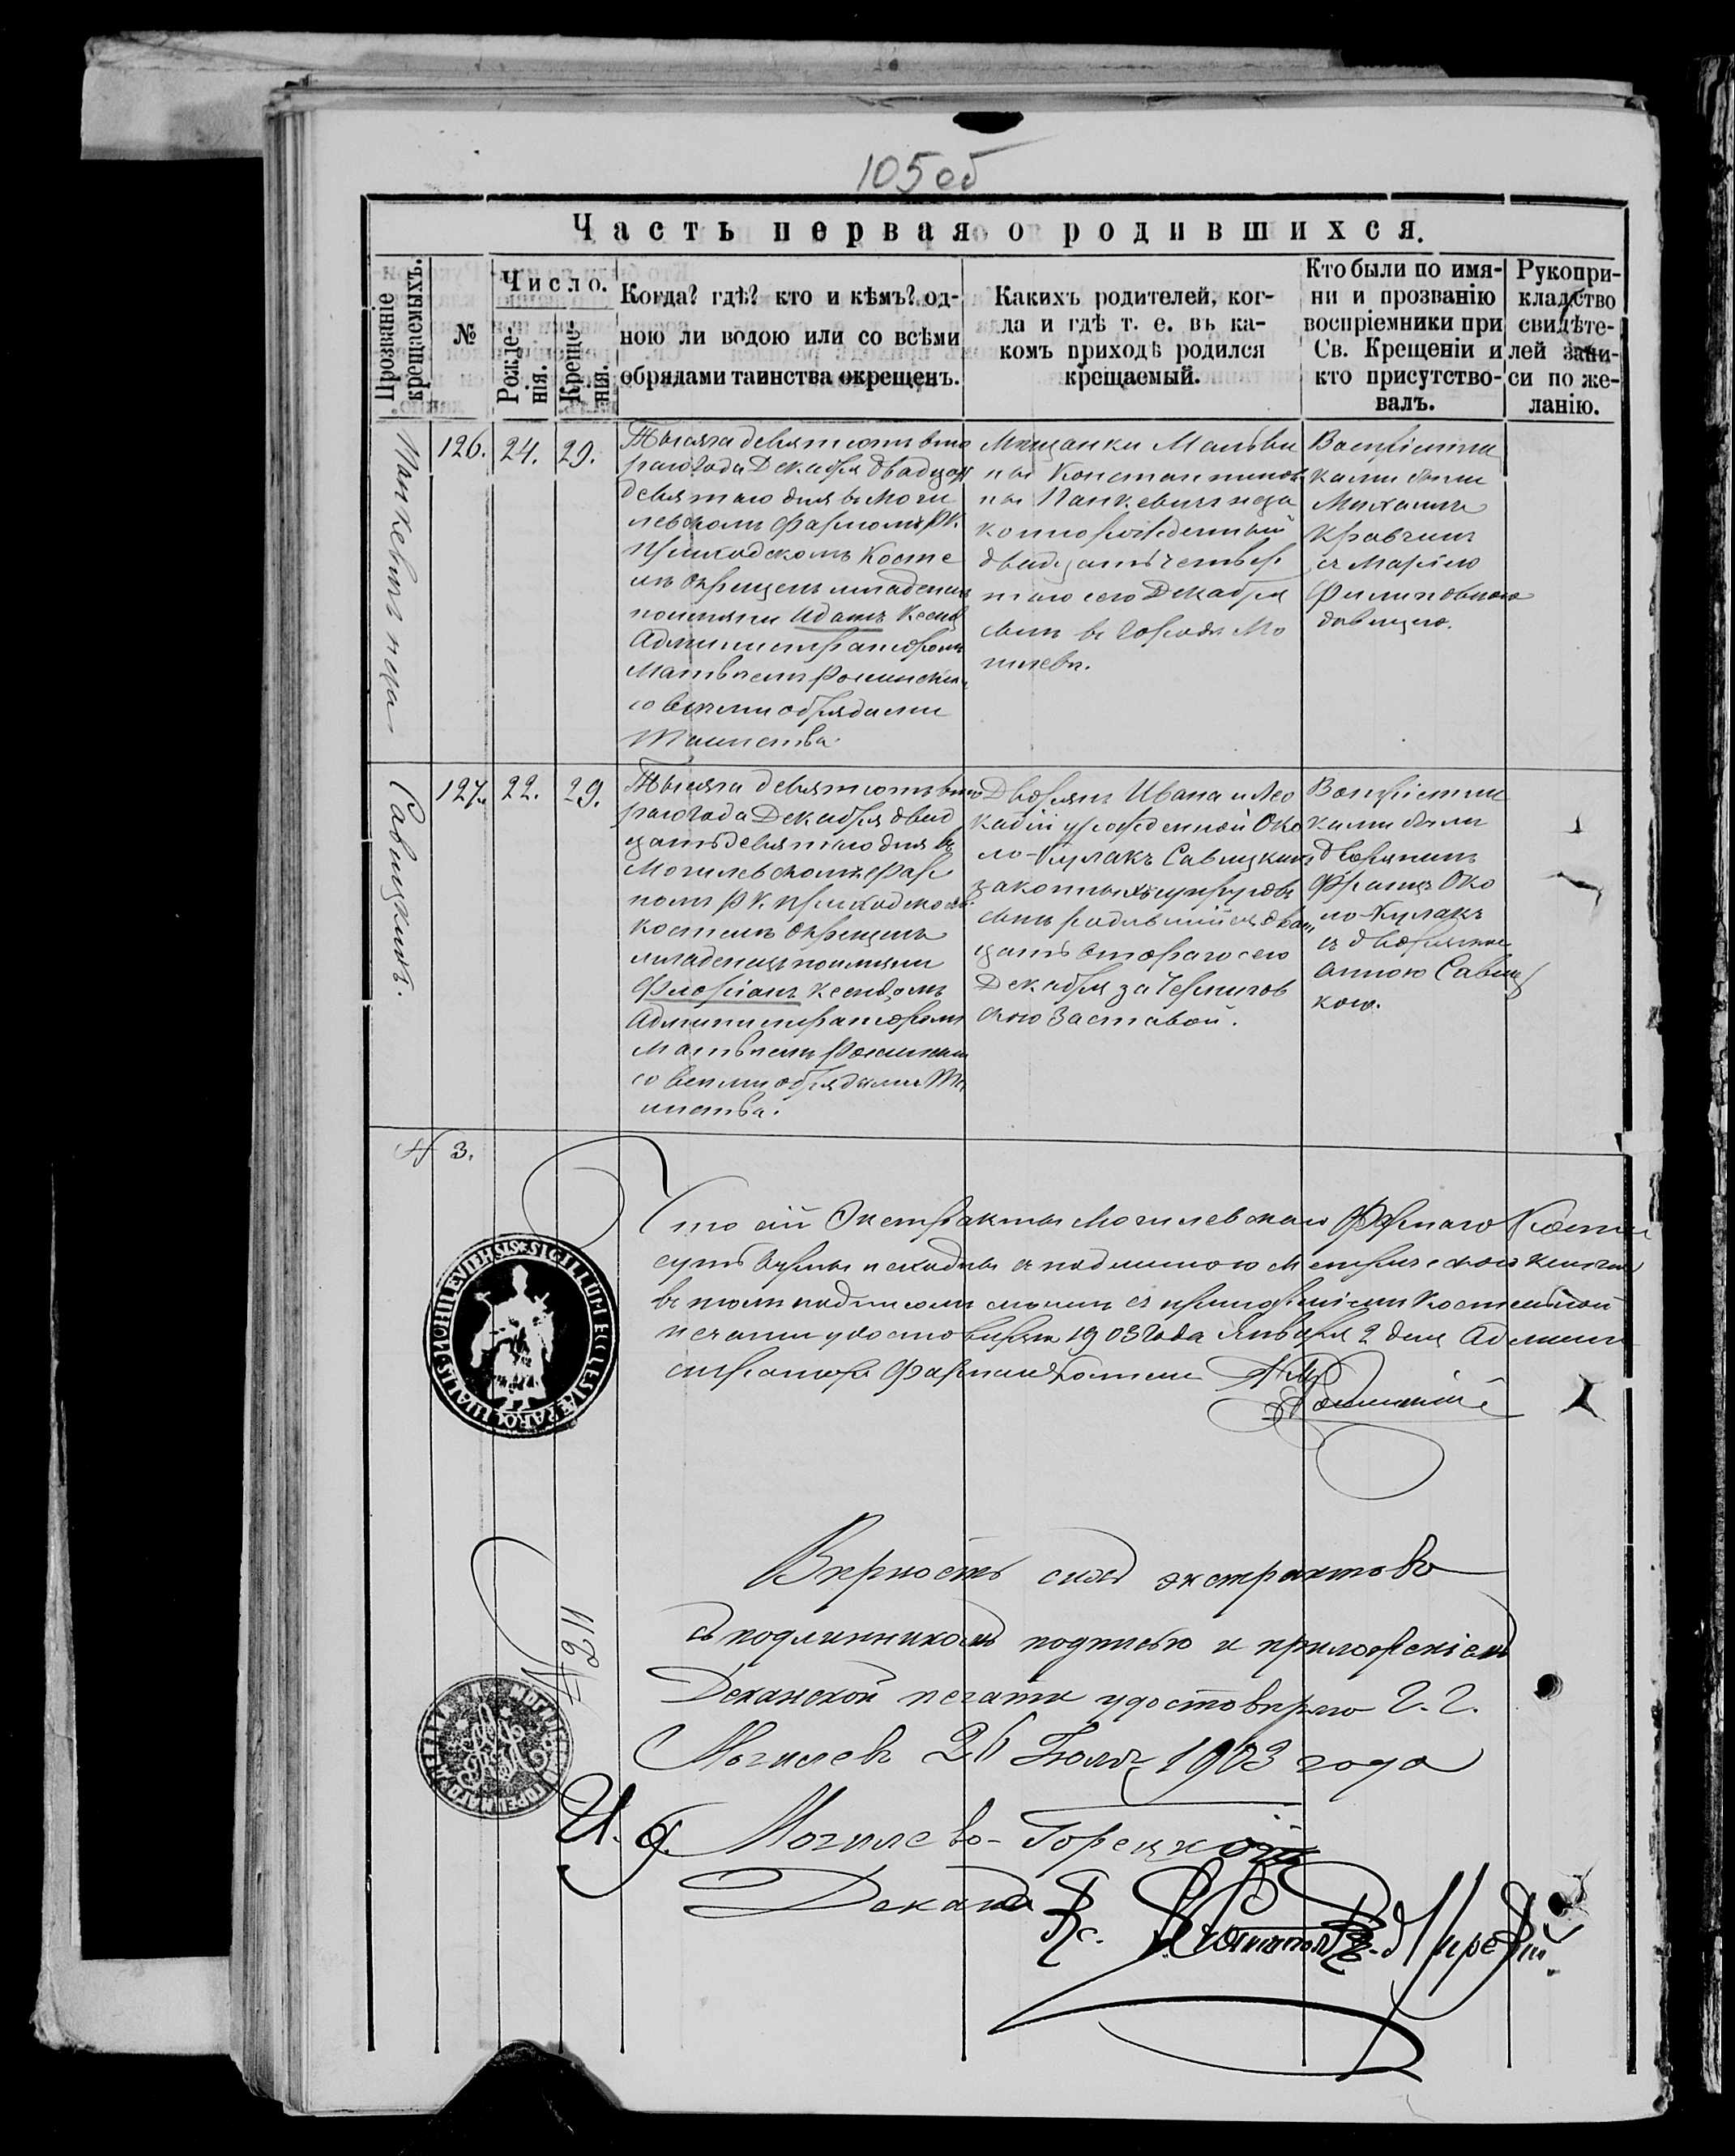 105 об
Часть первая о родившихся.
Прозваніе
крещаемыхъ.
№
Число.
Рожде-
нія.
Креще-
нія.
Когда? гдѣ? кто и кѣмъ? од-
ною ли водою или со всѣми
обрядами таинства окрещенъ.
Какихъ родителей, ког-
да и гдѣ т. е. въ ка-
комъ приходѣ родился
крещаемый.
Кто были по имя-
ни и прозванію
воспріемники при
Св. Крещеніи и
кто присутство-
валъ.
Рукопри-
кладство
свидѣте-
лей запи-
си по же-
ланію.
126.
24.
29.
Тысяча девятсотъ вто
раго года Декабря двадцать
девятаго дня въ Моги
левскомъ Фарномъ Р.К.
приходскомъ Косте
лѣ окрещенъ младенецъ
по имяни Адамъ Ксенд.
Администраторомъ
Матвѣемъ
со всѣми обрядами
Таинства.
Мѣщанки Мальви
ны Константинов
ны Панкевичъ неза
коннорожденный
двадцать четвер
таго сего Декабря
сынъ въ городѣ Мо
гилевѣ.
Воспріемни
ками были
Михаилъ
Кравчин
съ Маріею
Филиповною
дѣвицею.
Савицкий.
127.
22.
29.
Тысяча девятсотъ вто
раго года Декабря двад
цать девятаго дня въ
Могилевскомъ Фар
номъ Р.К. приходскомъ
костелѣ окрещенъ
младенецъ по имяни
Флоріанъ ксендзомъ
Администраторомъ
Матвѣемъ
со всѣми обрядами Та
инства.
Дворянъ Ивана и Лео
кадіи урожденной Око
ло-Кулакъ Савицкихъ
законныхъ супруговъ
сынъ родившійся двад
цать втораго сего
Декабря за Чернигов
скою Заставой.
Воспріемни
ками были
дворянинъ
Францъ Око
ло-Кулакъ
съ дворянкою
Анною Савиц
кою.
3.
Что сіи Экстракты Могилевскаго Фарнаго Косте
суть вѣрны и сходны съ подлинною Метрическою книгою
въ томъ подписомъ моимъ съ приложеніемъ Костельной
печати удостовѣряю 1903 года Января 2 дня Админи
стратора Фарнаго Костела
SIGILLUM ECCLESIÆ PAROCHIALIS MOHILEVIENSIS
Вѣрность сихъ экстрактовъ
съ подлинникомъ подписью и приложеніемъ
Деканской печати удостовѣряю Г. Г.
Могилевъ 26 Іюля 1903 года
И. д. Могилево-Горецкого
Декана Кс.